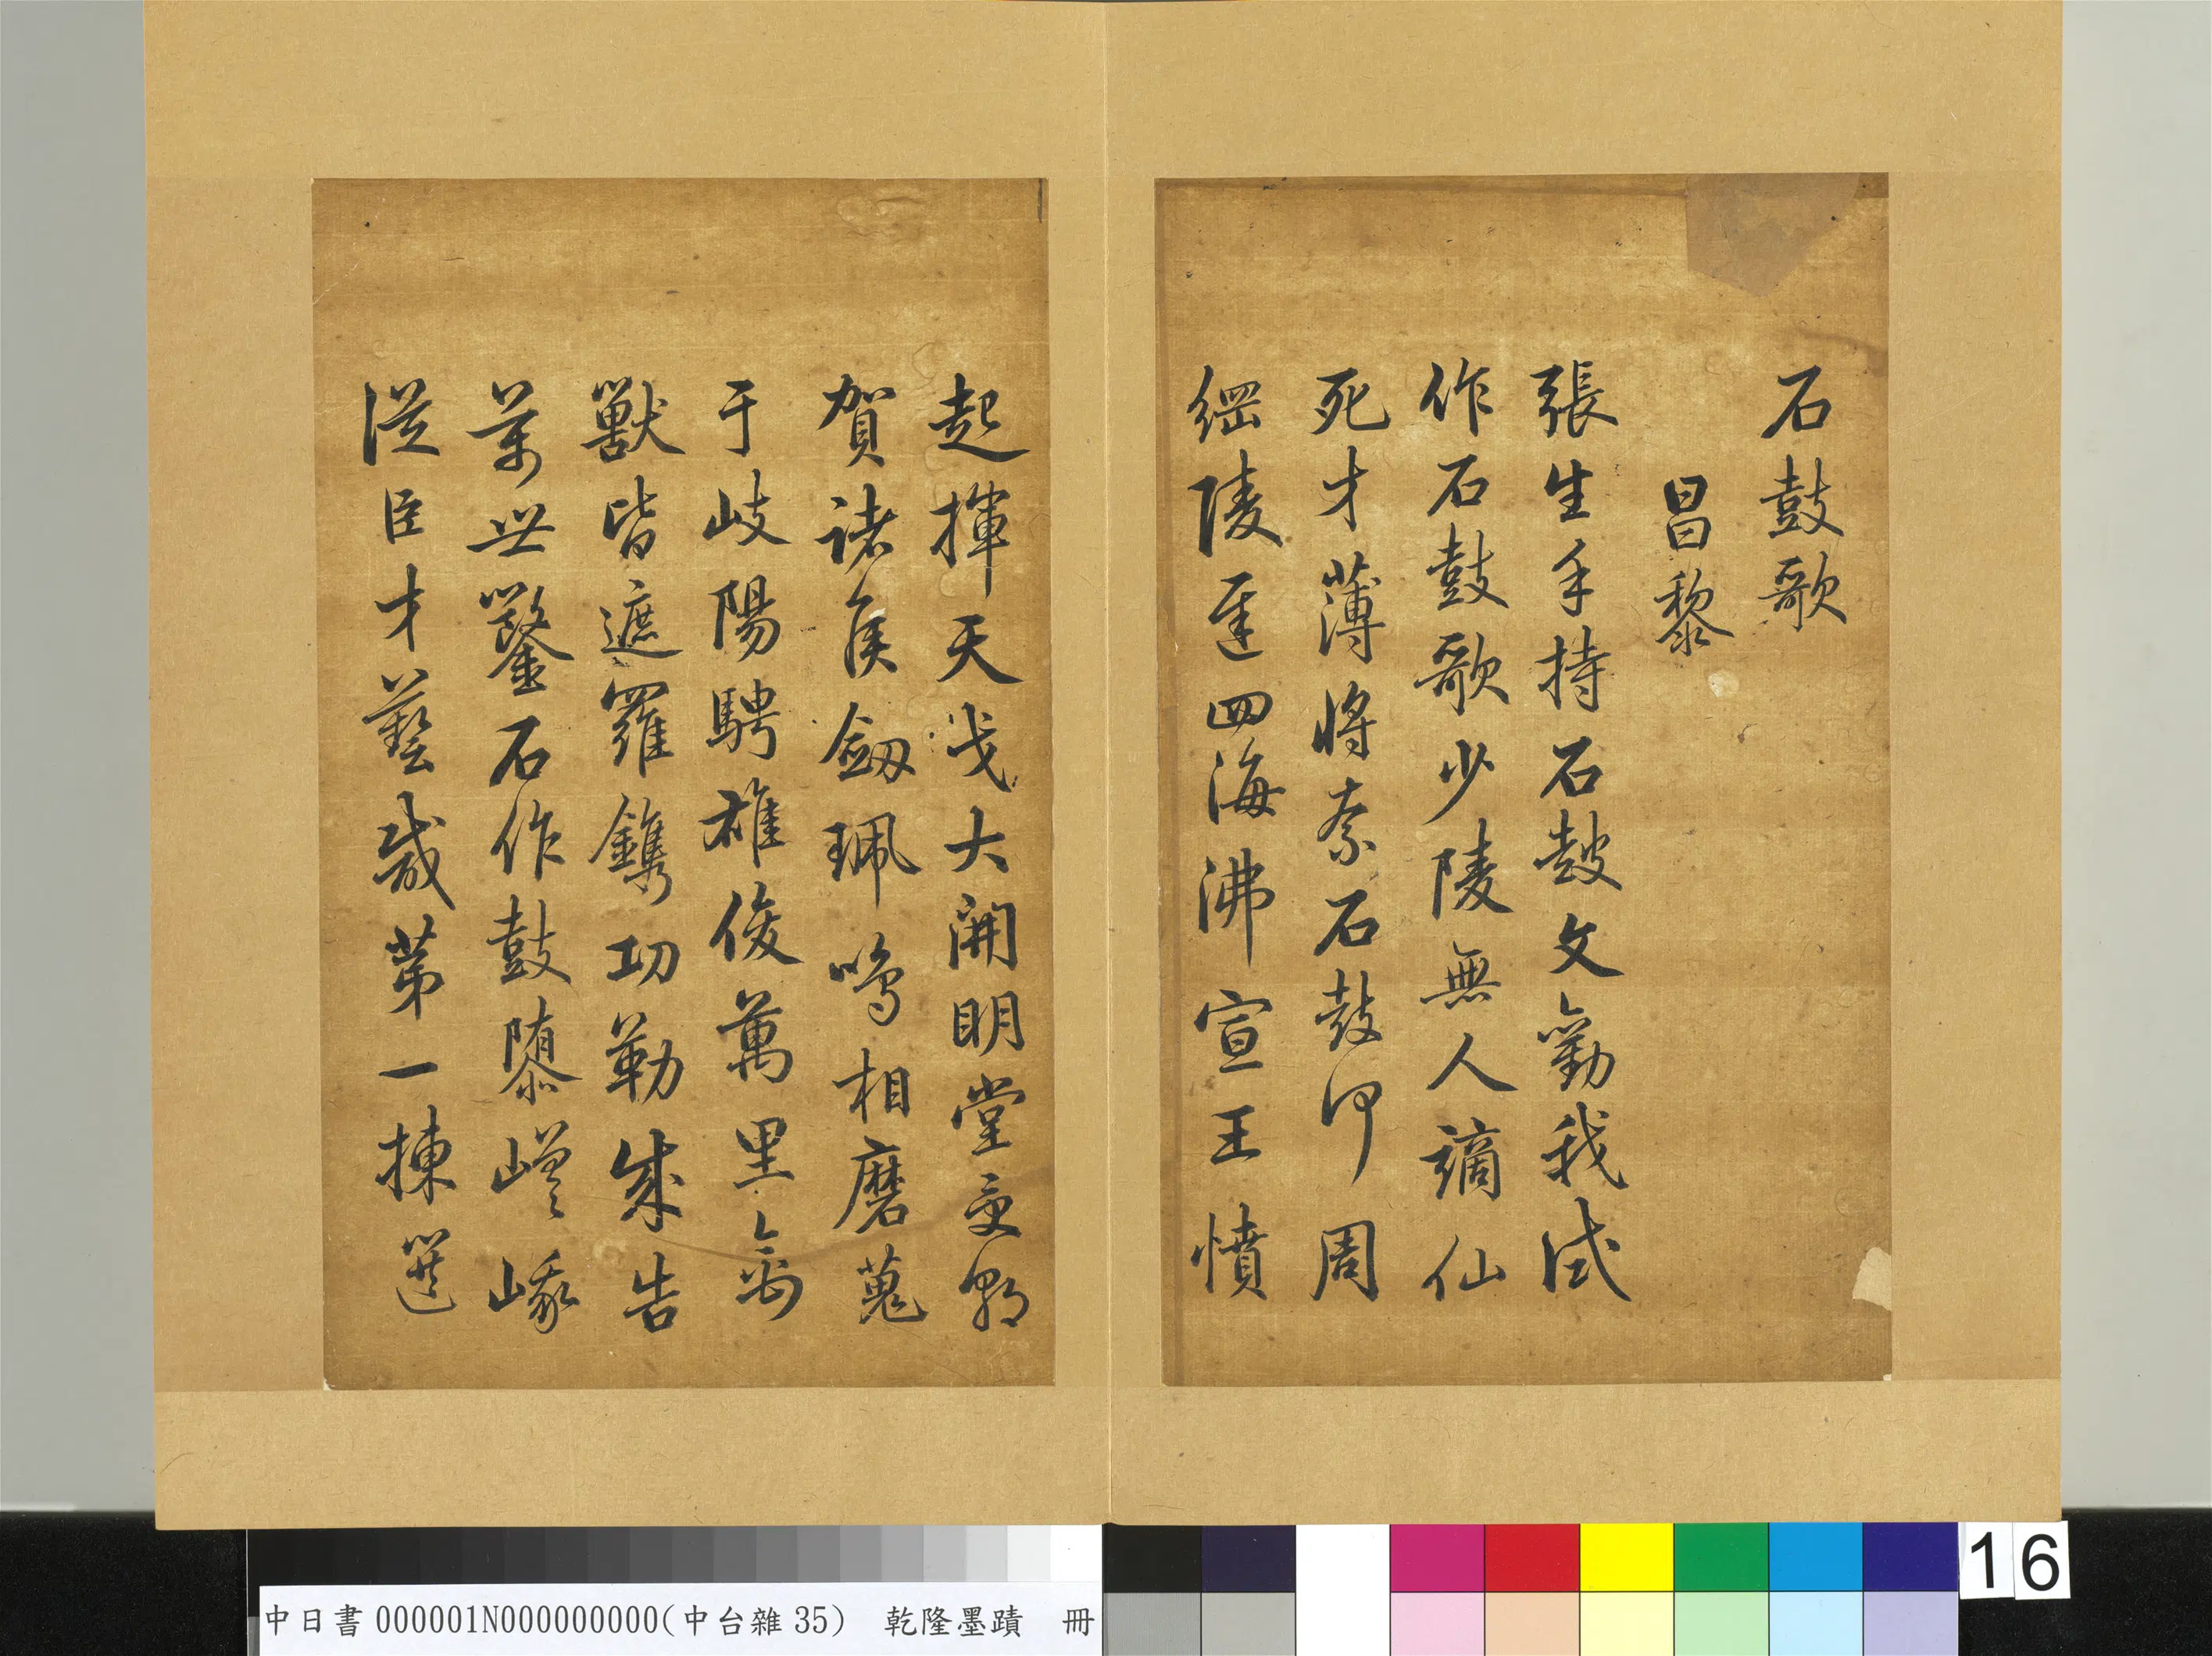 石鼓歌
昌黎
張生手持石鼓文勸我試
作石鼓歌少陵無人謫仙
死才薄將奈石鼓何周
綱陵遲四海沸宣王憤
起揮天戈大開明堂受朝
賀諸侯劔珮鳴相磨蒐
于岐陽騁雄俊萬里禽
獸皆遮羅鐫功勒成告
萬世鑿石作鼓隳嵯峨
從臣才藝咸第一揀選
中日書000001N000000000(中台雜35) 乾隆墨蹟 冊
16